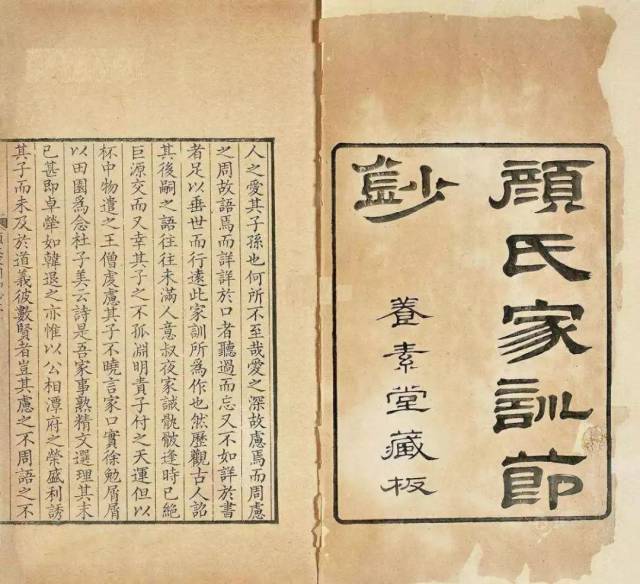 顏氏家訓節
鈔
養素堂藏板
人之愛其子孫也何所不至哉愛之深故慮焉而周慮
之周故語焉而詳詳於口者聽過而忘又不如詳於書
者足以垂世而行遠此家訓所爲作也然歷觀古人詔
其後嗣之語往往未滿人意叔夜家誡骫骳逢時已絕
巨源交而又幸其子之不孤淵明責子付之天運但以
杯中物遺之王僧虔慮其子不曉言家口實徐勉屑屑
以田園爲念杜子美云詩是吾家事熟精文選理其末
已甚即卓犖如韓退之亦惟以公相潭府之榮盛利誘
其子而未及於道義彼數賢者豈其慮之不周語之不